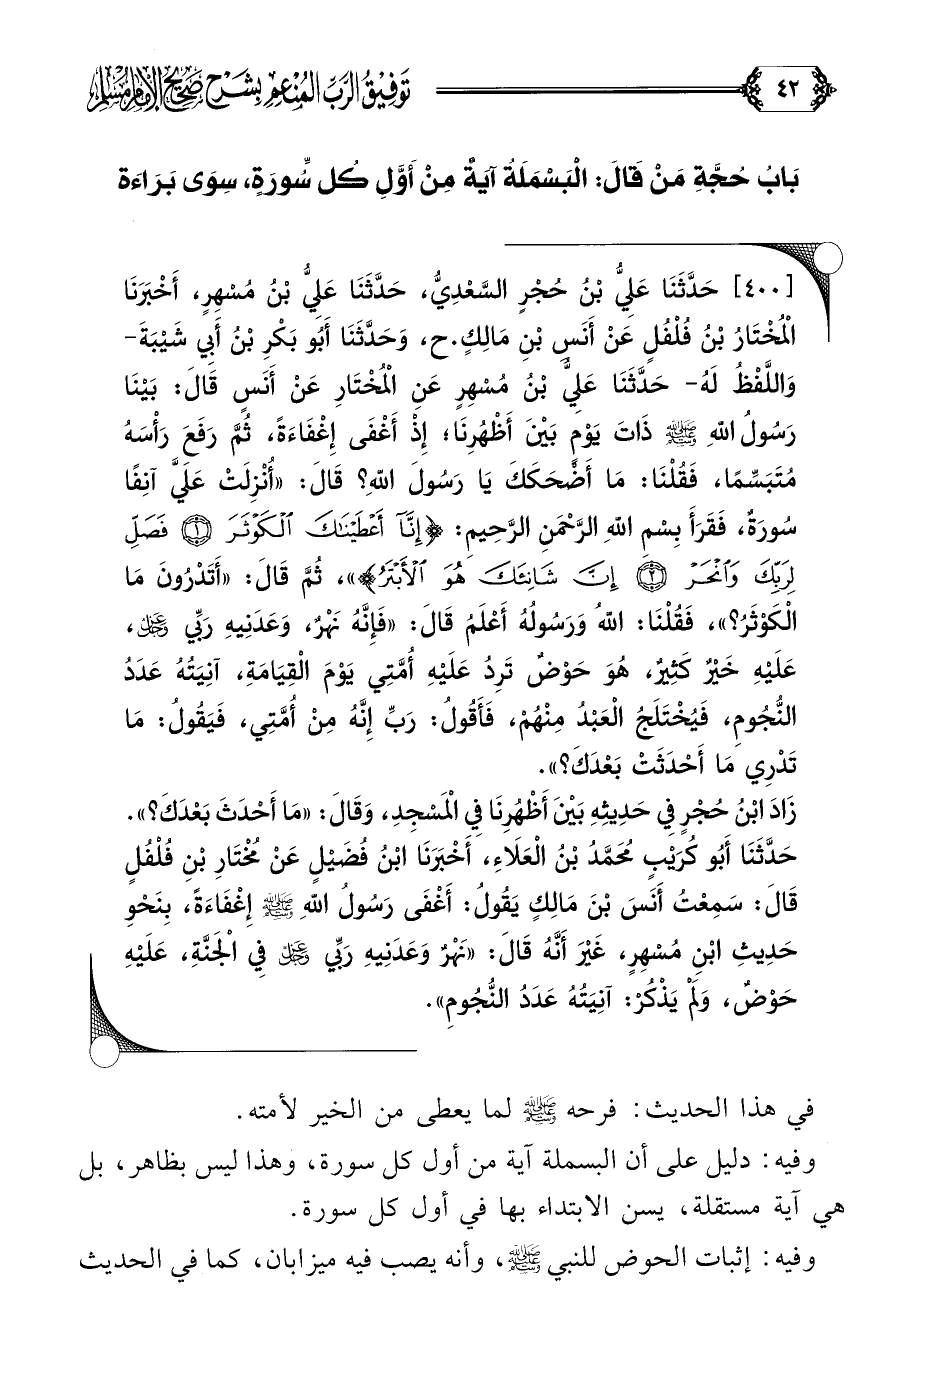 ٤٢ توفيق الرب المنعم بشرح صحيح الإمام مسلم
بَابُ حُجَّةِ مَنْ قَالَ: الْبَسْمَلَةُ آيَةٌ مِنْ أَوَّلِ كُلِّ سُورَةٍ، سِوَى بَرَاءَة
[٤٠٠] حَدَّثَنَا عَلِيُّ بْنُ حُجْرٍ السَّعْدِيُّ، حَدَّثَنَا عَلِيُّ بْنُ مُسْهِرٍ، أَخْبَرَنَا
الْمُخْتَارُ بْنُ فُلْفُلٍ عَنْ أَنَسِ بْنِ مَالِكٍ.ح، وَحَدَّثَنَا أَبُو بَكْرِ بْنُ أَبِي شَيْبَةَ-
وَاللَّفْظُ لَهُ- حَدَّثَنَا عَلِيُّ بْنُ مُسْهِرٍ عَنِ الْمُخْتَارِ عَنْ أَنَسٍ قَالَ: بَيْنَا
رَسُولُ اللهِ ﷺ ذَاتَ يَوْمٍ بَيْنَ أَظْهُرِنَا؛ إِذْ أَغْفَى إِغْفَاءَةً، ثُمَّ رَفَعَ رَأْسَهُ
مُتَبَسِّمًا، فَقُلْنَا: مَا أَضْحَكَكَ يَا رَسُولَ اللهِ؟ قَالَ: «أُنْزِلَتْ عَلَيَّ آنِفًا
سُورَةٌ، فَقَرَأَ بِسْمِ اللهِ الرَّحْمَنِ الرَّحِيمِ: ﴿إِنَّآ أَعْطَيْنَٰكَ ٱلْكَوْثَرَ ۝١ فَصَلِّ
لِرَبِّكَ وَٱنْحَرْ ۝٢ إِنَّ شَانِئَكَ هُوَ ٱلْأَبْتَرُ﴾»، ثُمَّ قَالَ: «أَتَدْرُونَ مَا
الْكَوْثَرُ؟»، فَقُلْنَا: اللهُ وَرَسُولُهُ أَعْلَمُ قَالَ: «فَإِنَّهُ نَهْرٌ، وَعَدَنِيهِ رَبِّي عز وجل،
عَلَيْهِ خَيْرٌ كَثِيرٌ، هُوَ حَوْضٌ تَرِدُ عَلَيْهِ أُمَّتِي يَوْمَ الْقِيَامَةِ، آنِيَتُهُ عَدَدُ
النُّجُومِ، فَيُخْتَلَجُ الْعَبْدُ مِنْهُمْ، فَأَقُولُ: رَبِّ إِنَّهُ مِنْ أُمَّتِي، فَيَقُولُ: مَا
تَدْرِي مَا أَحْدَثَتْ بَعْدَكَ؟».
زَادَ ابْنُ حُجْرٍ فِي حَدِيثِهِ بَيْنَ أَظْهُرِنَا فِي الْمَسْجِدِ، وَقَالَ: «مَا أَحْدَثَ بَعْدَكَ؟».
حَدَّثَنَا أَبُو كُرَيْبٍ مُحَمَّدُ بْنُ الْعَلَاءِ، أَخْبَرَنَا ابْنُ فُضَيْلٍ عَنْ مُخْتَارِ بْنِ فُلْفُلٍ
قَالَ: سَمِعْتُ أَنَسَ بْنَ مَالِكٍ يَقُولُ: أَغْفَى رَسُولُ اللهِ ﷺ إِغْفَاءَةً، بِنَحْوِ
حَدِيثِ ابْنِ مُسْهِرٍ، غَيْرَ أَنَّهُ قَالَ: «نَهْرٌ وَعَدَنِيهِ رَبِّي عز وجل فِي الْجَنَّةِ، عَلَيْهِ
حَوْضٌ، وَلَمْ يَذْكُرْ: آنِيَتُهُ عَدَدُ النُّجُومِ».
في هذا الحديث: فرحه ﷺ لما يعطى من الخير لأمته.
وفيه: دليل على أن البسملة آية من أول كل سورة، وهذا ليس بظاهر، بل
هي آية مستقلة، يسن الابتداء بها في أول كل سورة.
وفيه: إثبات الحوض للنبي ﷺ، وأنه يصب فيه ميزابان، كما في الحديث